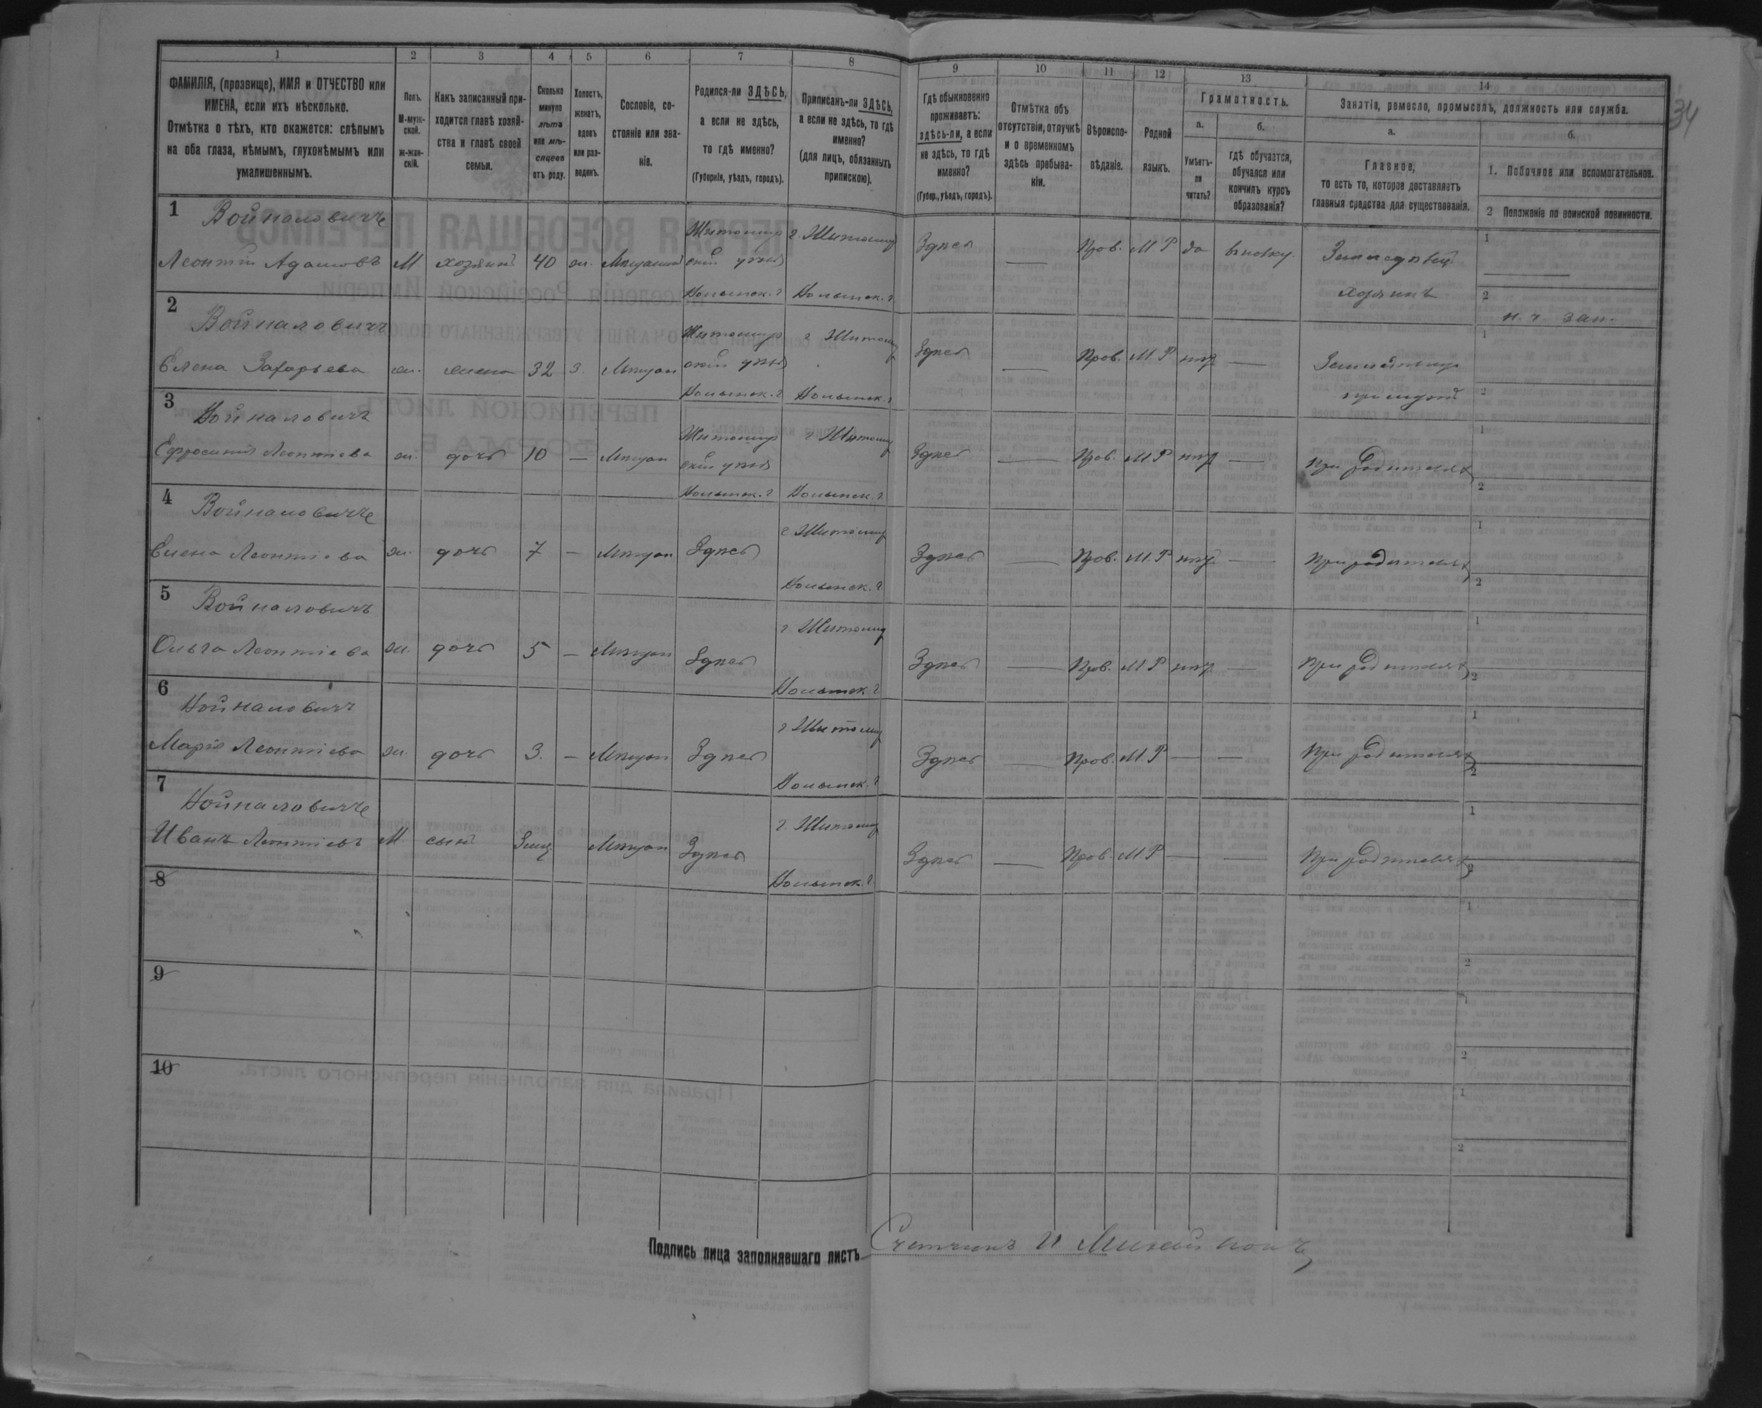 34
1 2 3 4 5 6 7 8 9 10 11 12 13 14
ФАМИЛІЯ, (прозвище), ИМЯ и ОТЧЕСТВО или ИМЕНА, если ихъ нѣсколько.
Отмѣтка о тѣхъ, кто окажется: слѣпымъ на оба глаза, нѣмымъ, глухонѣмымъ или умалишеннымъ.
Полъ. М-муж-ской. ж-жен-скій.
Какъ записанный при-ходится главѣ хозяй-ства и главѣ своей семьи.
Сколько минуло лѣтъ или мѣ-сяцевъ отъ роду.
Холостъ, женатъ, вдовъ или раз-веденъ.
Сословіе, со-стояніе или зва-ніе.
Родился-ли ЗДѢСЬ, а если не здѣсь, то гдѣ именно?
(Губернія, уѣздъ, городъ).
Приписанъ-ли ЗДѢСЬ, а если не здѣсь, то гдѣ именно?
(для лицъ, обязанныхъ припискою).
Гдѣ обыкновенно проживаетъ: здѣсь-ли, а если не здѣсь, то гдѣ именно?
(Губер., уѣздъ, городъ).
Отмѣтка объ отсутствіи, отлучкѣ и о временномъ здѣсь пребыва-ніи.
Вѣроиспо-вѣданіе.
Родной языкъ.
Грамотность.
а. Умѣетъ-ли читать?
б. гдѣ обучается, обучался или кончилъ курсъ образованія?
Занятіе, ремесло, промыселъ, должность или служба.
а. Главное, то есть то, которое доставляетъ главныя средства для существованія.
б.
1. Побочное или вспомогательное.
2 Положеніе по воинской повинности.
1 Войналовичъ
Леонтій Адамовъ М хозяинъ 40 ж. Мѣщанинъ Житомір скій уѣздъ Волынск. г г Житомир Волынск. г Здѣсь — Прав. М Р да Земледѣлецъ хозяинъ
2 Войналовичъ
Елена Захарьева ж. жена 32 з. Мѣщан Житомір скій уѣздъ Волынск. г г Житомир Волынск. г Здѣсь — Прав. М Р нѣтъ —
3 Войналовичъ
Ефросинія Леонтіева ж. дочь 10 — Мѣщан Житомір скій уѣздъ Волынск. г г Житомир Волынск. г Здѣсь — Прав. М Р нѣтъ — При родителях
4 Войналовичъ
Елена Леонтіева ж. дочь 7 — Мѣщан Здѣсь г Житомир Волынск. г Здѣсь — Прав. М Р нѣтъ — При родителях
5 Войналовичъ
Ольга Леонтіева ж. дочь 5 — Мѣщан Здѣсь г Житомир Волынск. г Здѣсь — Прав. М Р нѣтъ — При родителях
6 Войналовичъ
Марія Леонтіева ж. дочь 3. — Мѣщан Здѣсь г Житомир Волынск. г Здѣсь — Прав. М Р — — При родителях
7 Войналовичъ
Иванъ Леонтіевъ М сынъ Мѣщан Здѣсь г Житомир Волынск. г Здѣсь — Прав. М Р — — При родителях
8
9
10
Подпись лица заполнявшаго листъ Счетчикъ И